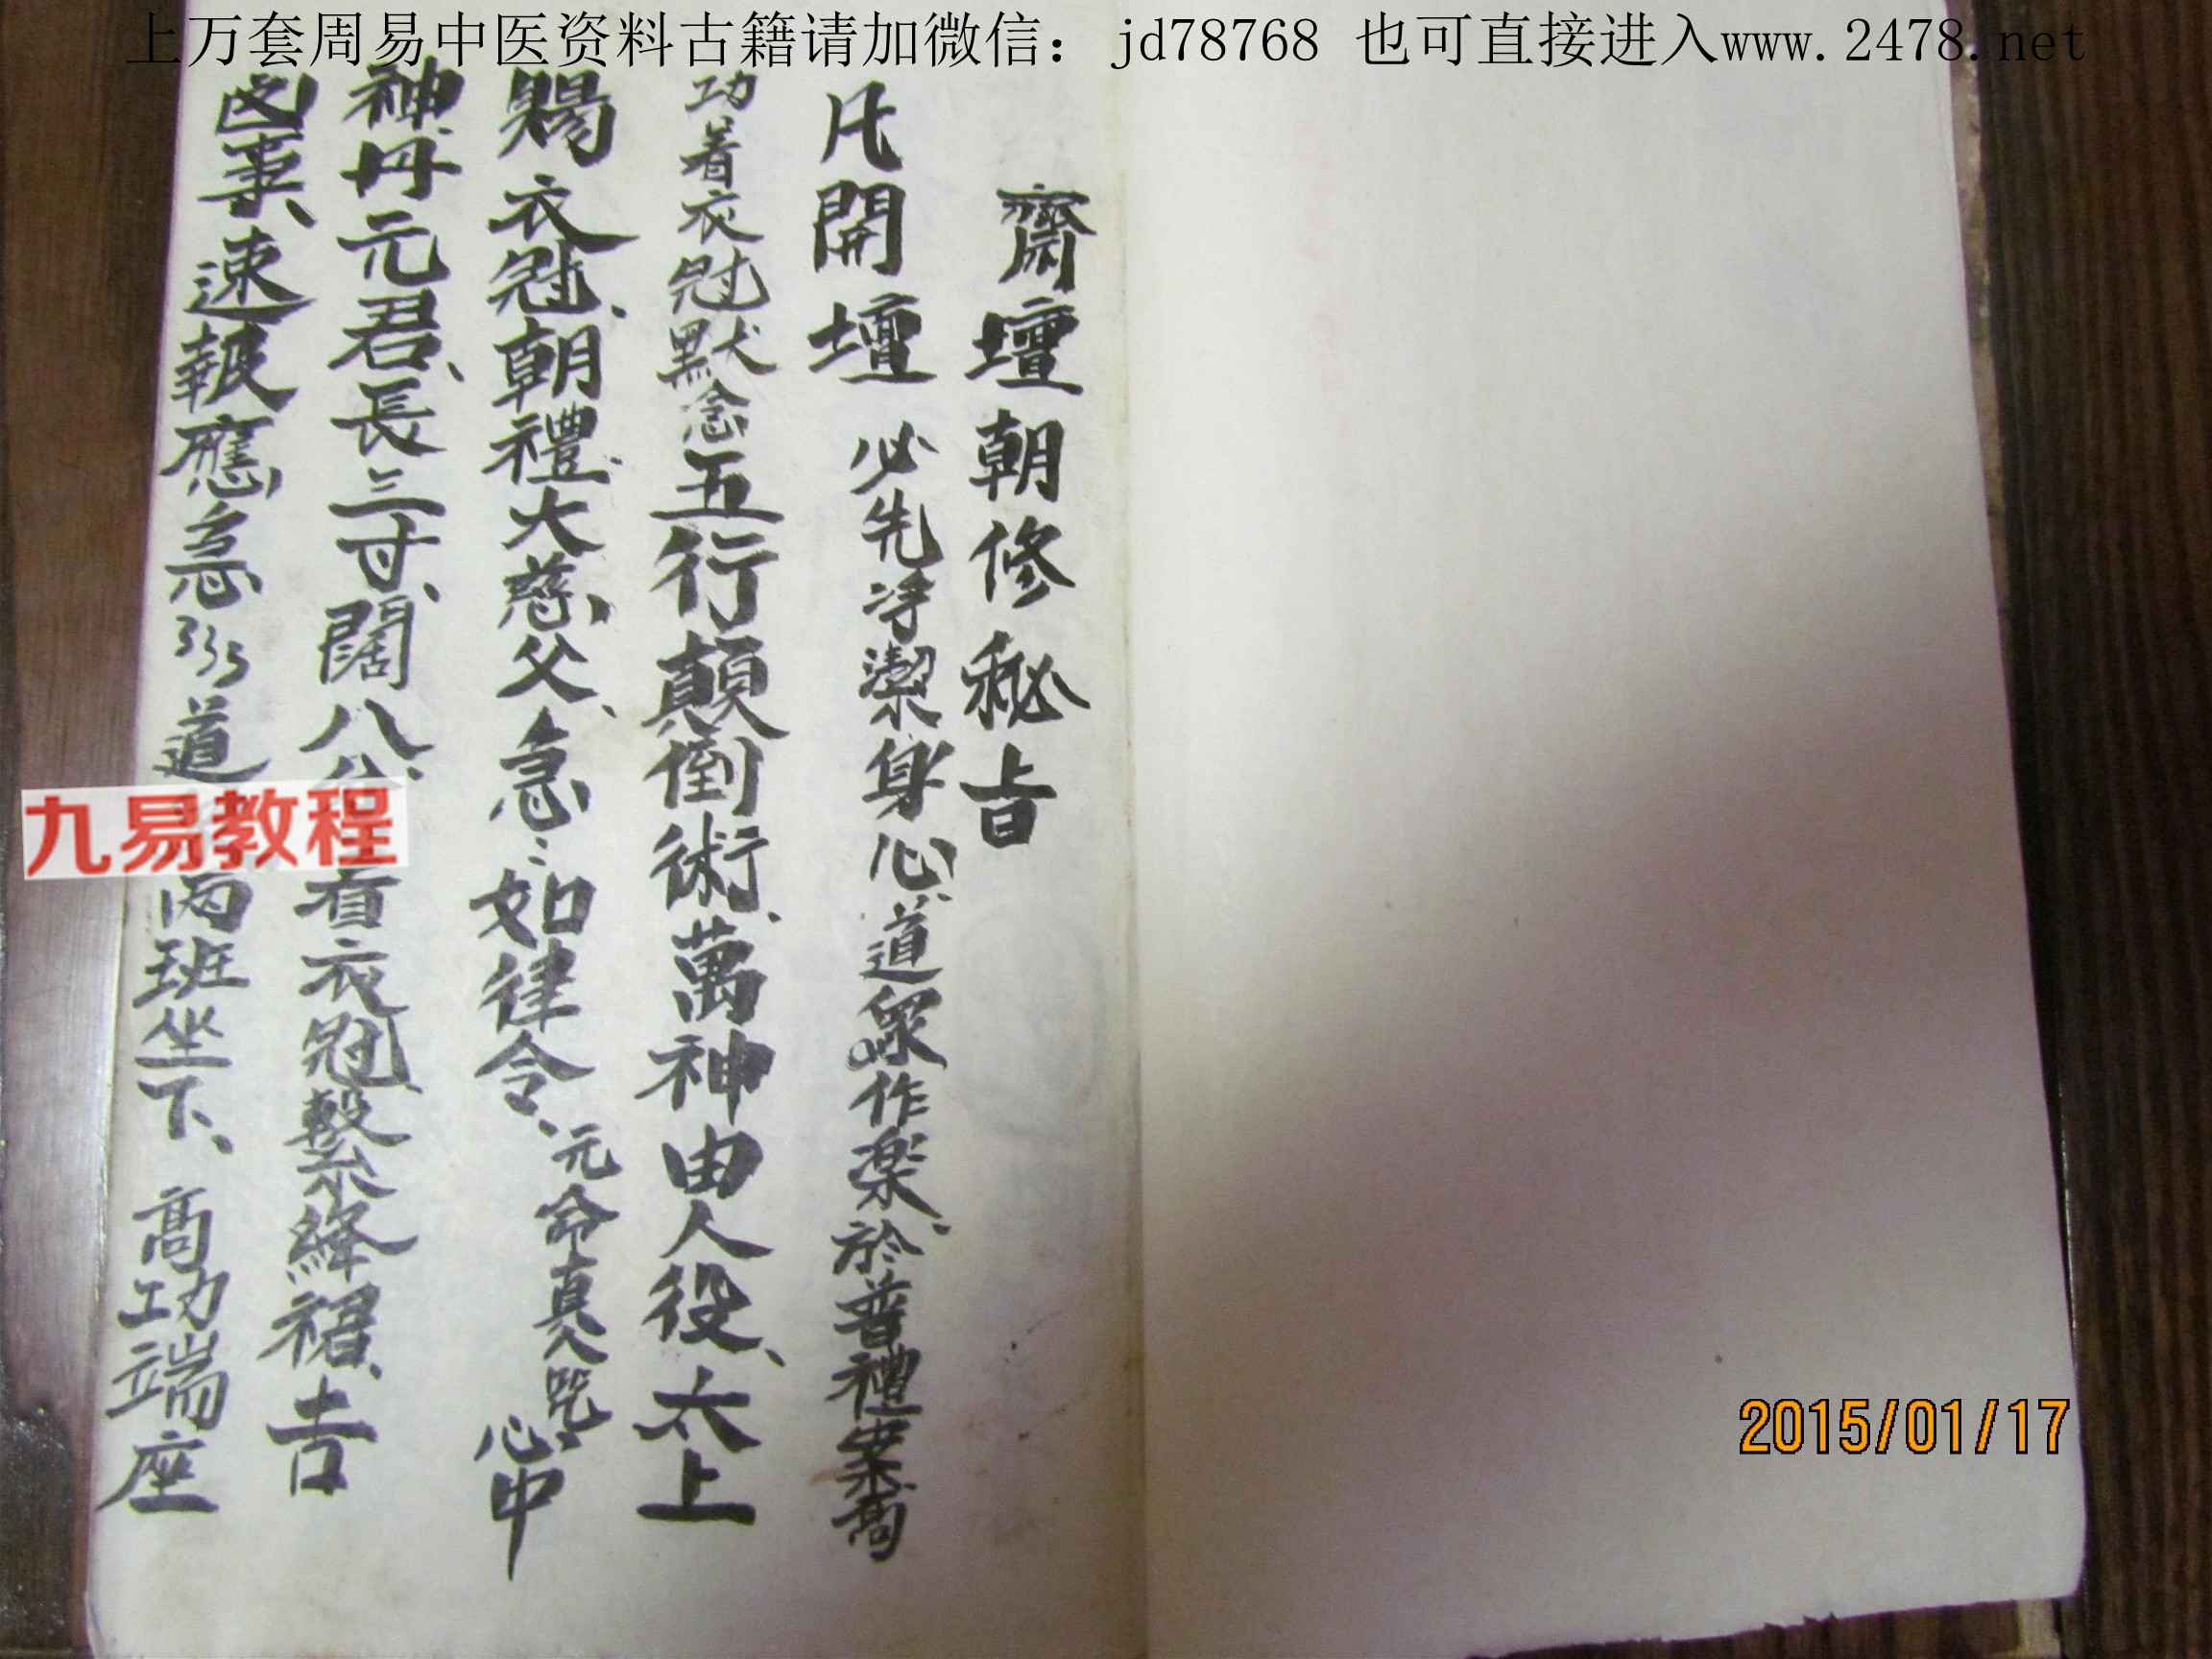 上万套周易中医资料古籍请加微信： jd78768 也可直接进入www.2478.net
齋壇朝修秘旨
凡開壇 必先净潔身心、道眾作楽、於普禮案高
功着衣冠默念五行顛倒術、萬神由人役、太上
賜衣冠、朝禮大慈父、急〻如律令、元命真人咒、心中
神丹元君、長三寸、闊八分、着衣冠、繫絳裙、吉
凶事、速報應、急道兩班坐下、高功端座
九易教程
2015/01/17